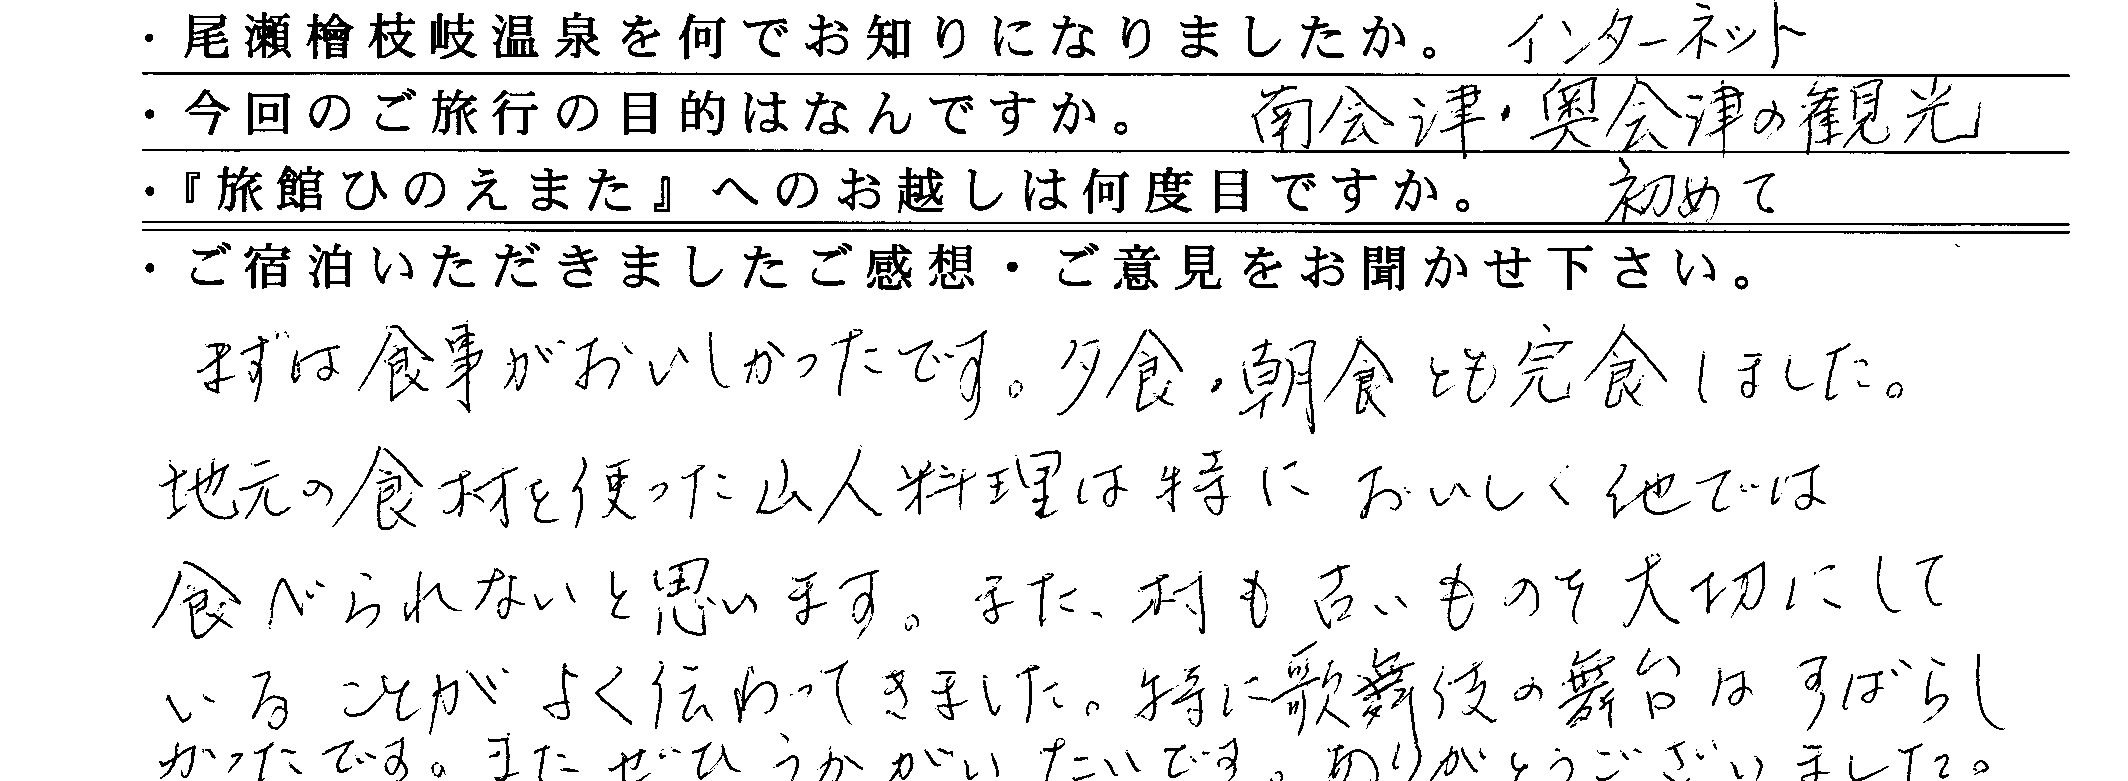 ・尾瀬檜枝岐温泉を何でお知りになりましたか。 インターネット
・今回のご旅行の目的はなんですか。 南会津・奥会津の観光
・『旅館ひのえまた』へのお越しは何度目ですか。 初めて
・ご宿泊いただきましたご感想・ご意見をお聞かせ下さい。
まずは食事がおいしかったです。夕食・朝食とも完食しました。
地元の食材を使った山人料理は特においしく他では
食べられないと思います。また、村も古いものを大切にして
いることがよく伝わってきました。特に歌舞伎の舞台はすばらし
かったです。またぜひうかがいたいです。ありがとうございました。